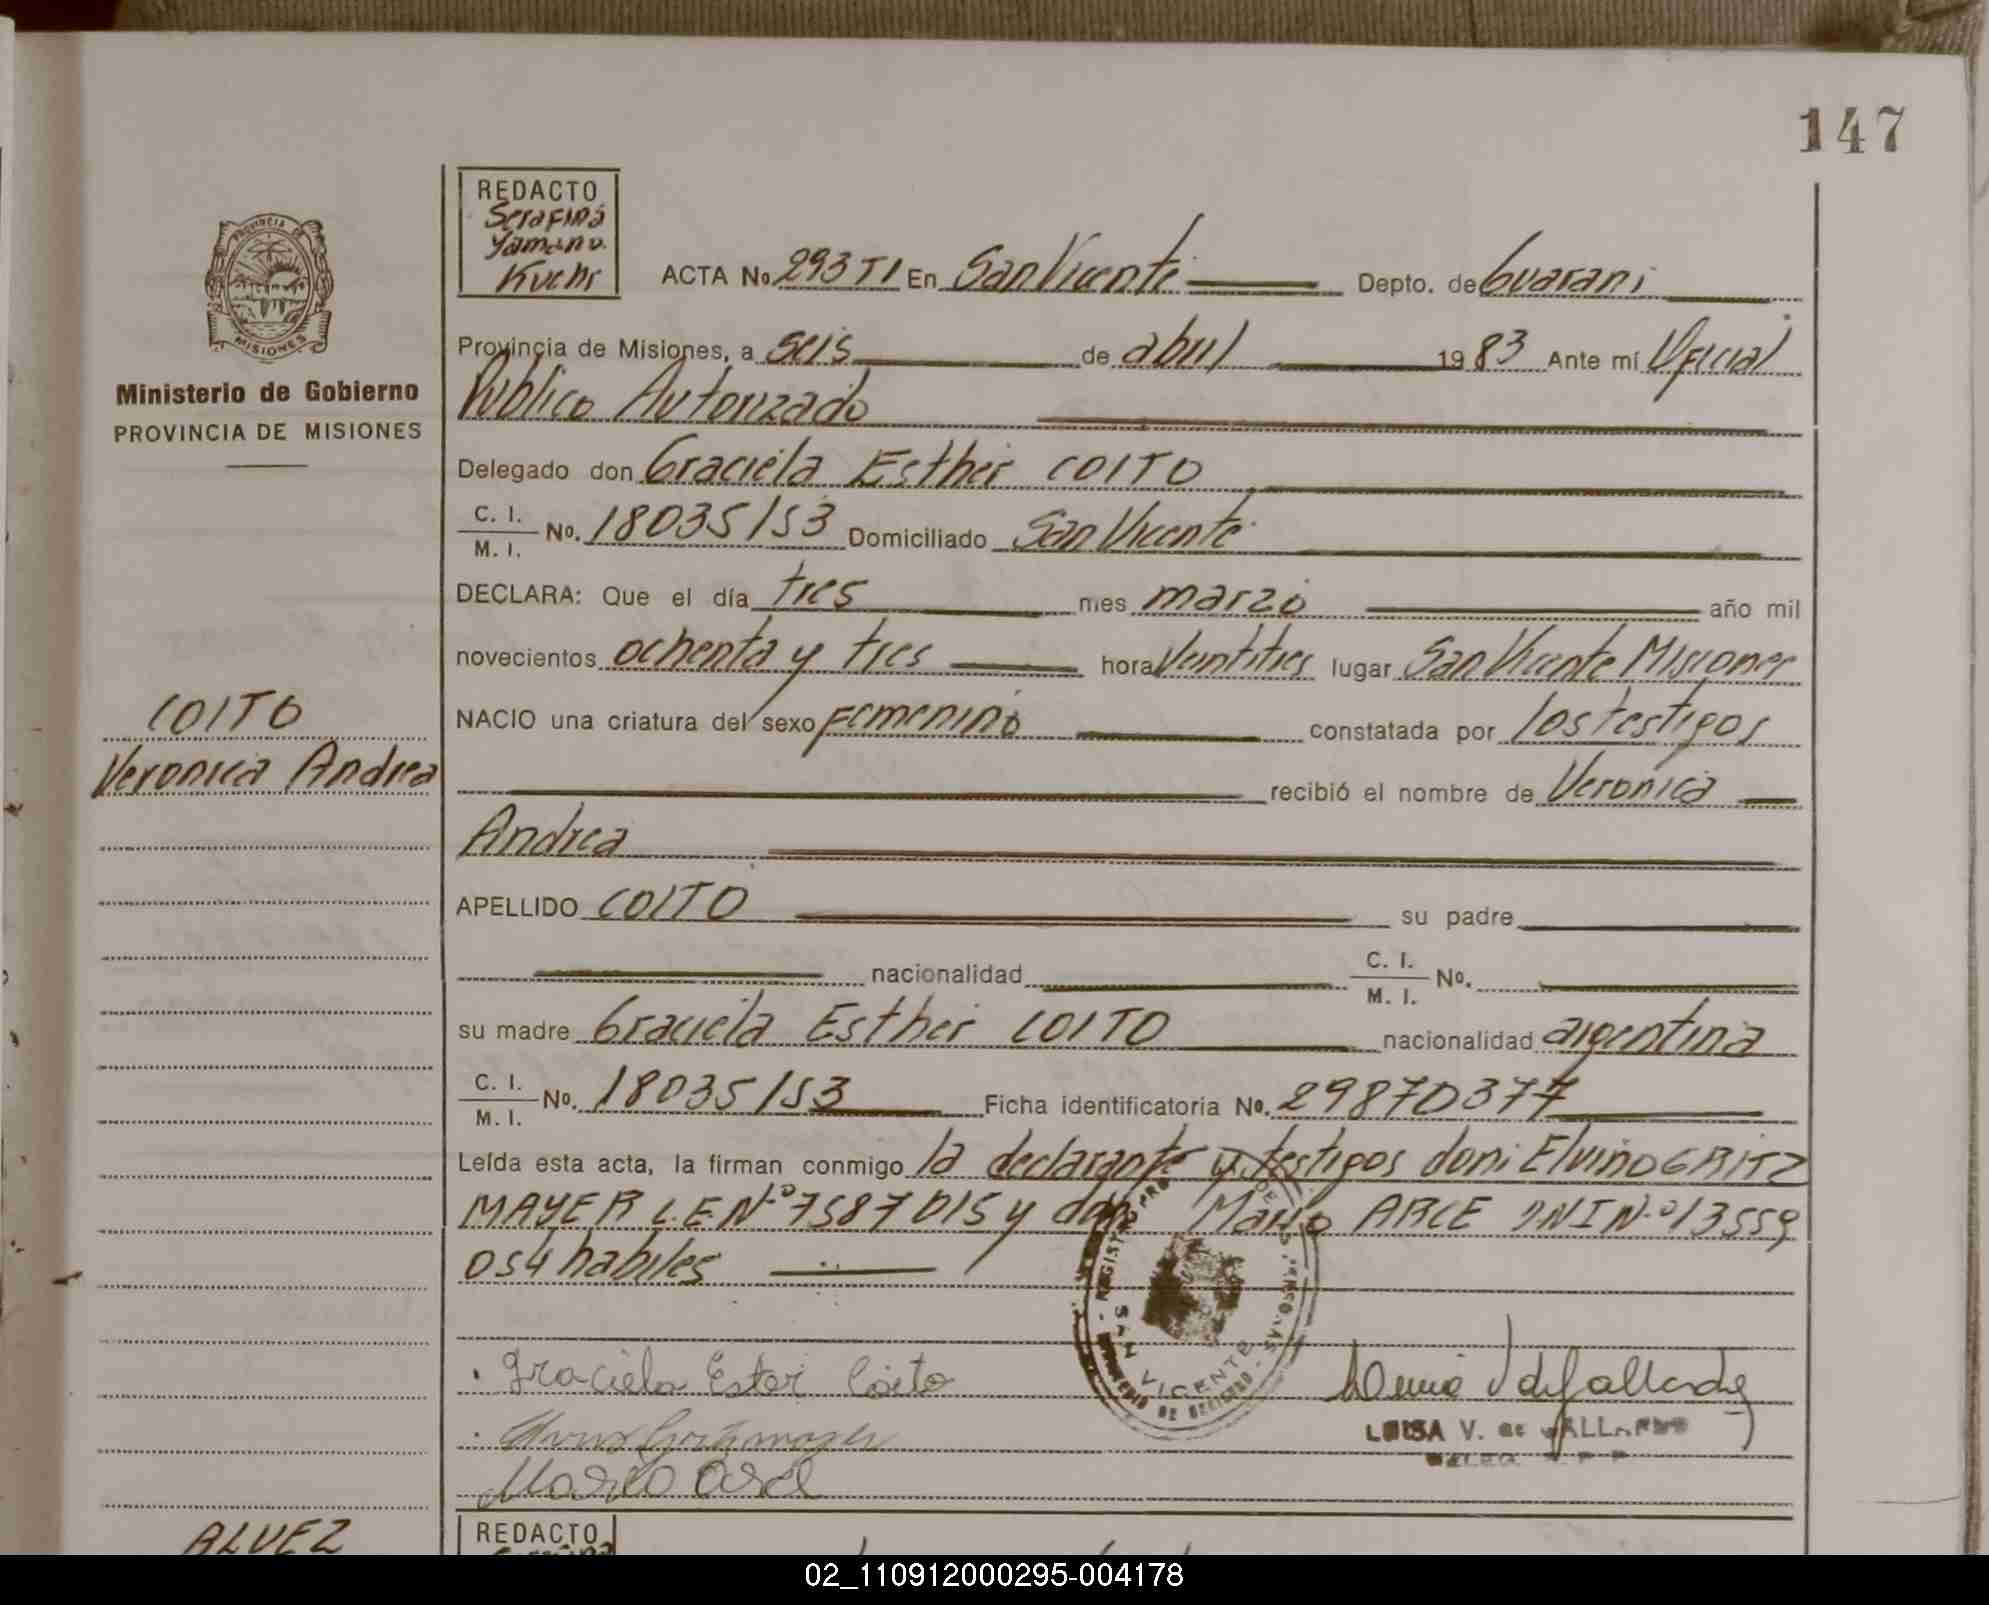 147
REDACTO
Serafina
Yamano.
Kuchs
PROVINCIA DE
MISIONES
Ministerio de Gobierno
PROVINCIA DE MISIONES
ACTA No. 293 TI En San Vicente Depto. de Guarani
Provincia de Misiones, a seis de abril 1983 Ante mí Oficial
Publico Autorizado
Delegado don Graciela Esther COITO
C. I.
M. I. No. 18035153 Domiciliado San Vicente
DECLARA: Que el día tres mes marzo año mil
novecientos ochenta y tres hora Veintitres lugar San Vicente Misiones
NACIO una criatura del sexo femenino constatada por los testigos
COITO
Veronica Andrea
recibió el nombre de Veronica
Andrea
APELLIDO COITO su padre
nacionalidad C. I.
M. I. No.
su madre Graciela Esther COITO nacionalidad argentina
C. I.
M. I. No. 18035153 Ficha identificatoria No. 29870377
Leída esta acta, la firman conmigo la declarante y testigos don: Elvino GRITZ
MAYER L.E Nº 7587015 y don Mario ARCE DNI N.º 13559
054 habiles
SAN VICENTE
Graciela Ester Coito
Mario Arce
LUISA V. de GALLARDO
ALVEZ
REDACTO
02_110912000295-004178